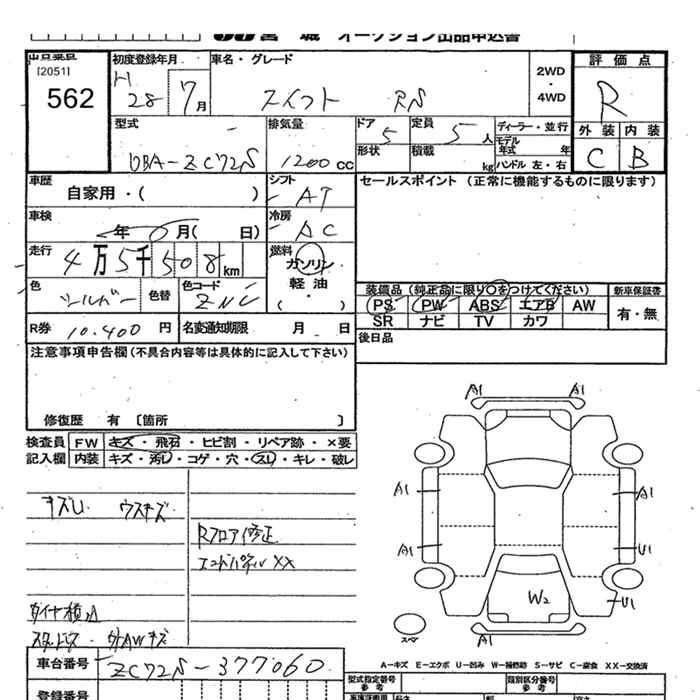 宮城 オークション出品申込書
出品番号
[2051]
562
初度登録年月
H 28 7月
車名・グレード
スイフト RS
2WD
・
4WD
評価点
R
外装 内装
C B
型式
DBA-ZC72S
排気量
1200cc
ドア 5
形状
定員 5人
積載 kg
ディーラー・並行
モデル年式 年
ハンドル 左・右
車歴
自家用・( )
シフト
AT
セールスポイント (正常に機能するものに限ります)
車検
年 月( 日)
冷房
AC
走行
4万5千508km
燃料
ガソリン
軽油
・
( )
色
シルバー
色替
色コード
ZNC
装備品 (純正品に限り○をつけてください)
PS PW ABS エアB AW
SR ナビ TV カワ
新車保証書
有・無
R券 10.400円
名変通知期限 月 日
後日品
注意事項申告欄(不具合内容等は具体的に記入して下さい)
修復歴 有 〔箇所 〕
検査員 FW キズ・飛石・ヒビ割・リペア跡・×要
記入欄 内装 キズ・汚レ・コゲ・穴・スレ・キレ・破レ
キズU ウスキズ
Rフロア修正
エンドパネルXX
タイヤ積込
A1 A1
A1 A1
A1 U1
W2 U1
A1
スペア
A-キズ E-エクボ U-凹み W-補修跡 S-サビ C-腐食 XX-交換済
車台番号 ZC72S-377060
型式指定番号 参考
類別区分番号 参考
登録番号